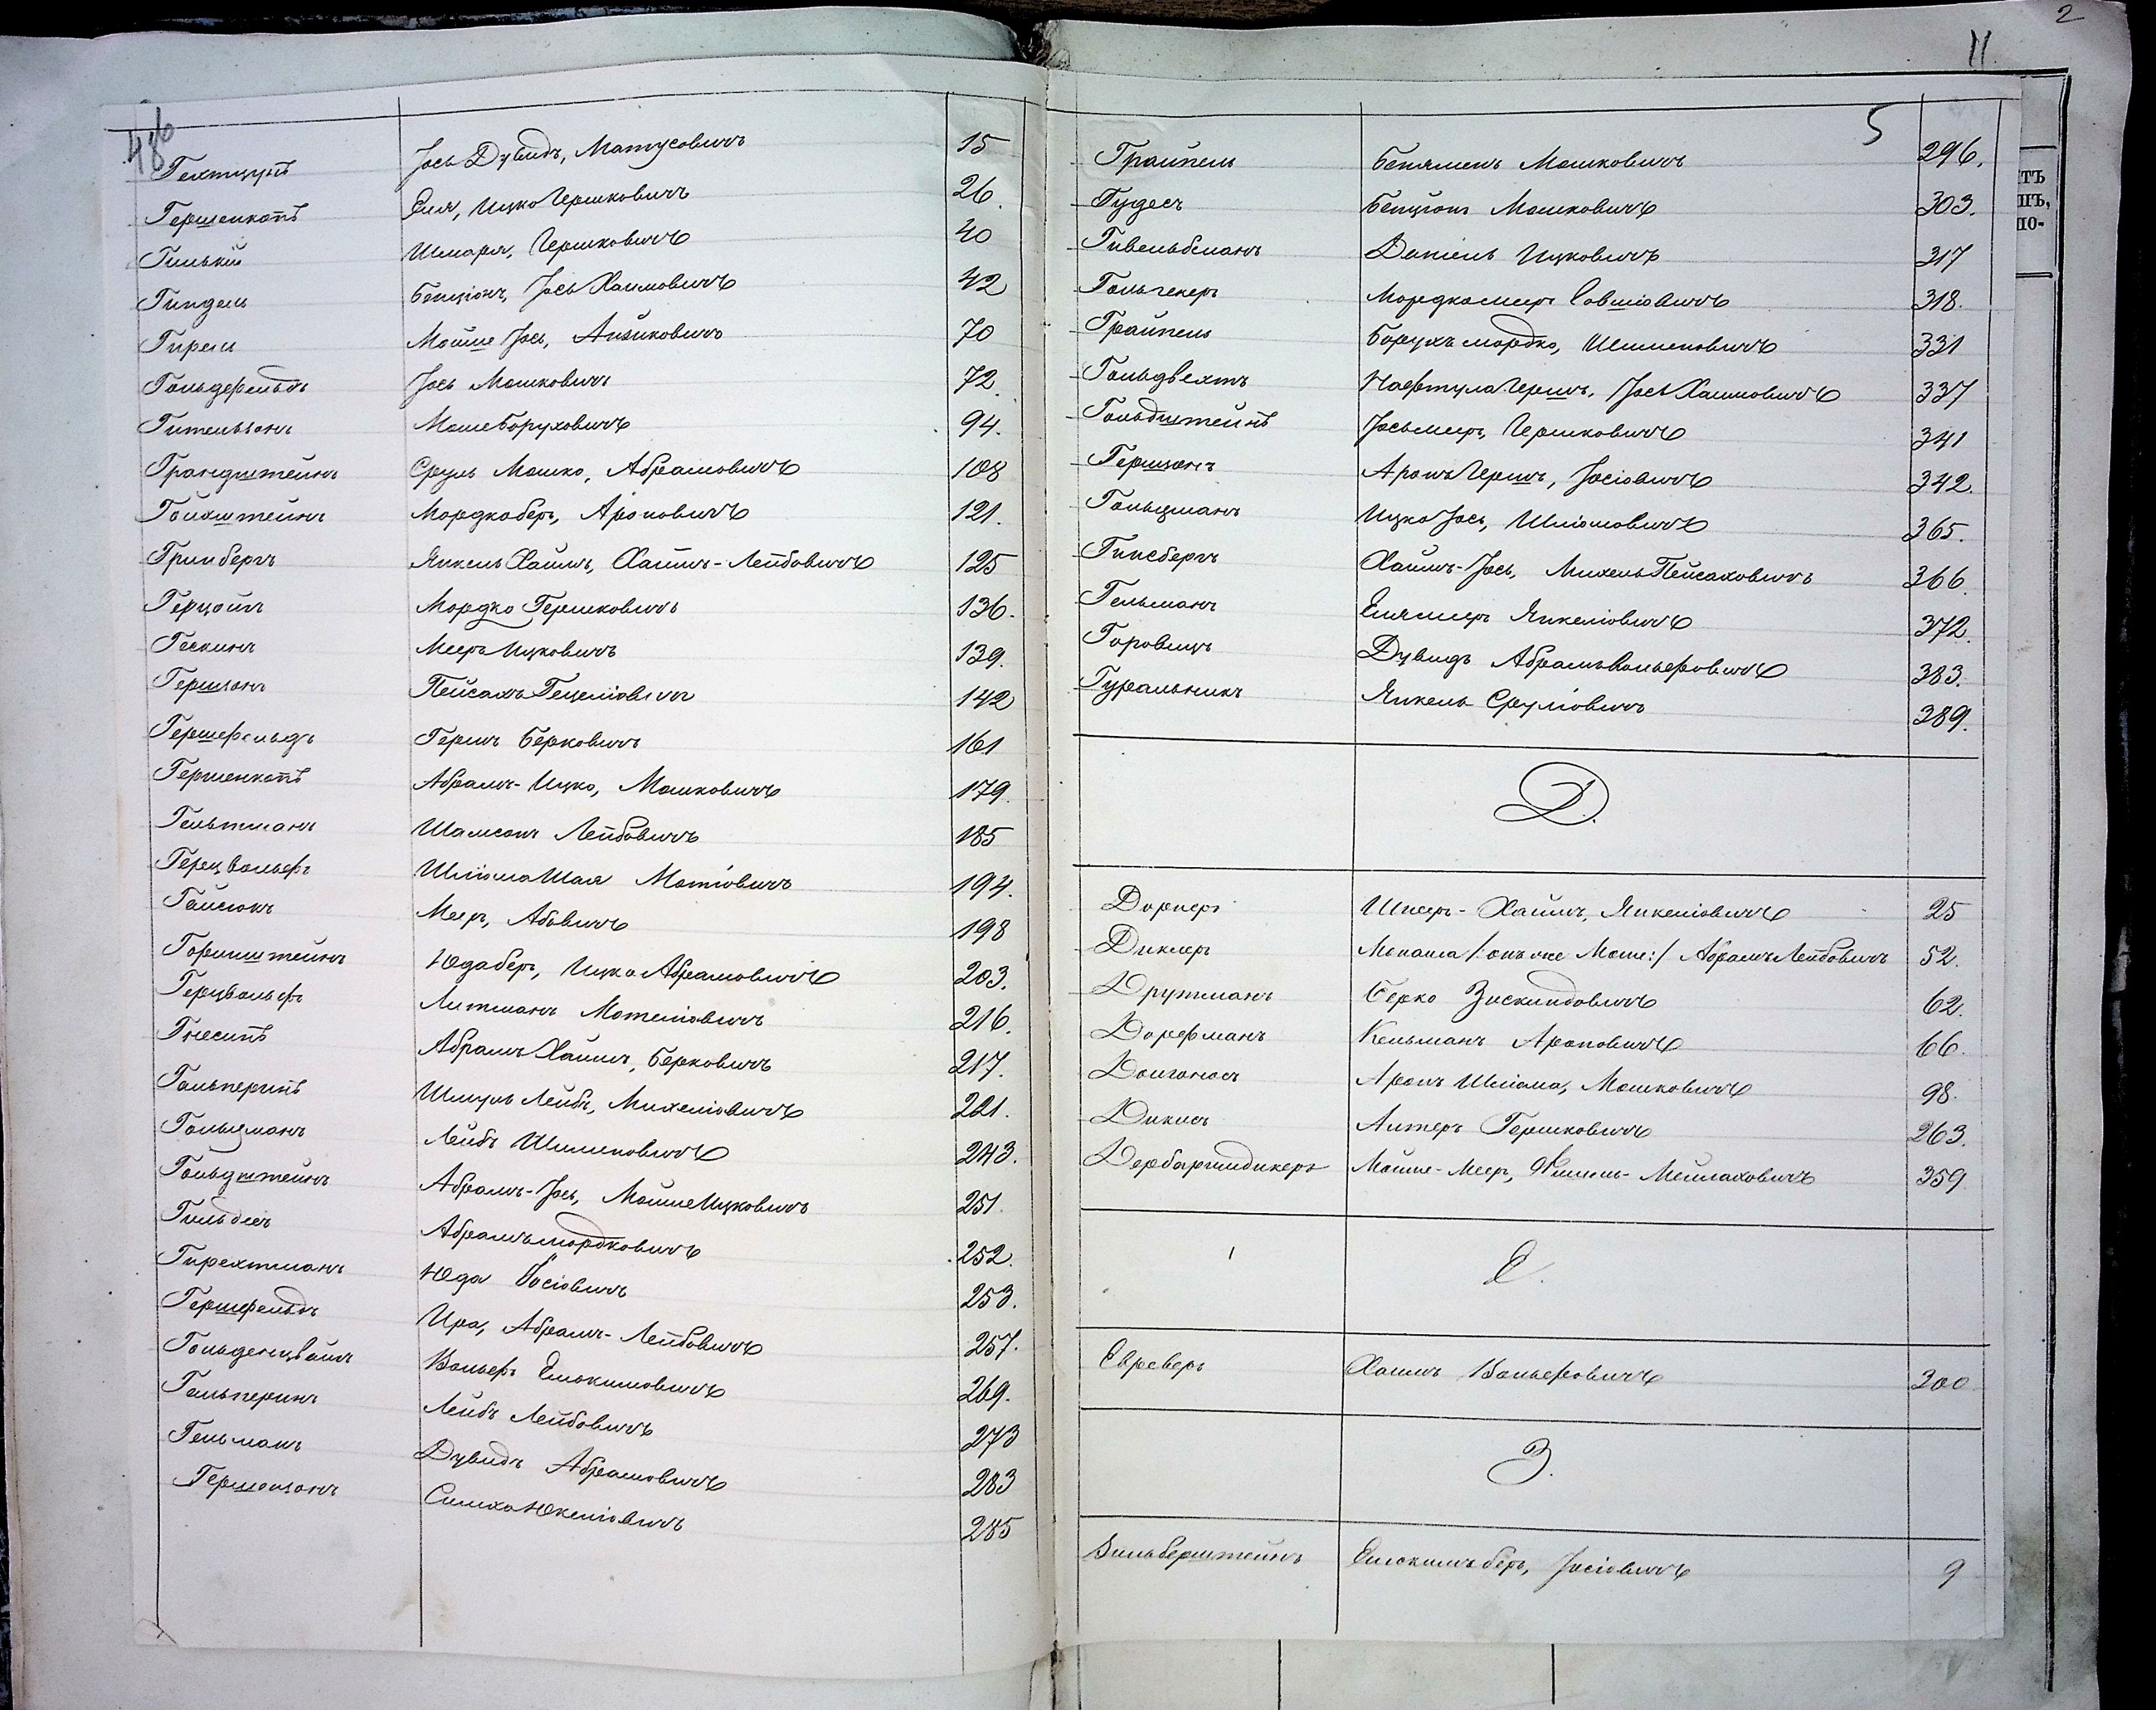 2
11
486
5
Гехтцугъ Іось Дувидъ, Матусовичъ 15
Гершенкопъ Еля, Ицко Гершковичъ 26.
Гилькій Шмаря, Гершковичъ 40
Гиндель Бенціонъ, Іось Хаимовичъ 42
Гирели Мойше Іось, Айзиковичъ 70
Гольдфельдъ Іось Мошковичъ 72.
Гительзонъ Моше Боруховичъ 94.
Грандштейнъ Сруль Мошко, Абрамовичъ 108
Гойхштейнъ Мордкоберъ, Ароновичъ 121.
Гринбергъ Янкель Хаимъ, Хаимъ-Лейбовичъ 125
Герцоймъ Мордко Гершковичъ 136.
Гескинъ Мееръ Ицковичъ 139.
Гершзонъ Пейсахъ Гецеліовичъ 142
Гершфельдъ Гершъ Берковичъ 161
Гершенкопъ Абрамъ-Ицко, Мошковичъ 179.
Гельтманъ Шамсонъ Лейбовичъ 185
Герцвольфъ Шліома Шая Мотіовичъ 194.
Гайсіокъ Мееръ, Абовичъ 198
Горинштейнъ Юдаберъ, Ицко Абрамовичъ 203.
Герцвольфъ Литманъ Мотеліовичъ 216.
Гнесинъ Абрамъ Хаимъ, Берковичъ 217.
Гольперинъ Шмуль Лейбъ, Михеліовичъ 221.
Гольцманъ Лейбъ Шименовичъ 243.
Гольдштейнъ Абрамъ-Іось, Мойше Ицковичъ 251.
Гильбсъ Абрамъмордковичъ 252.
Гирехтманъ Юда Іосіовичъ 253.
Гершфельдъ Ира, Абрамъ-Лейбовичъ 257.
Гольденцвайгъ Вольфъ Ельокимовичъ 269.
Гольперинъ Лейбъ Лейбовичъ 273
Гельманъ Дувидъ Абрамовичъ 283
Гершонзонъ Симха Юкеліовичъ 285
Грайпель Беняменъ Мошковичъ 296.
Гудесъ Бенціонъ Мошковичъ 303.
Гивельбманъ Даніель Ицковичъ 317
Гольгекеръ Мордкомееръ Совшіовичъ 318.
Грайпель Борухъ мордко, Шименовичъ 331
Гольдвехтъ Нафтула Гершъ, Іось Хаимовичъ 337
Гольдштейнъ Іосьмееръ, Гершковичъ 341
Гершзонъ Аронъ Гершъ, Іосіовичъ 342.
Гольцманъ Ицко Іось, Шліомовичъ 365.
Гинсбергъ Хаимъ-Іось, Михель Пейсаховичъ 366.
Гельманъ Елямееръ Янкеліовичъ 372.
Горовицъ Дувидъ Абрамъ Вольфовичъ 383.
Гуральникъ Янкель Сруліовичъ 389.
Д.
Дорнеръ Шнееръ-Хаимъ, Янкеліовичъ 25
Диклеръ Монаша /:онъ же Моше:/ Абрамъ Лейбовичъ 52.
Друтманъ Берко Зискиндовичъ 62.
Дорфманъ Кельманъ Ароновичъ 66.
Долгоносъ Аронъ Шліома, Мошковичъ 98.
Дикисъ Алтеръ Гершковичъ 263.
Дербаримдикеръ Мойше-Мееръ, Фишель-Мейлаховичъ 359
Е.
Евреверъ Хаимъ Вольфовичъ 300
З.
Зильберштейнъ Елюкимъ беръ, Іосіовичъ 9
тъ
шъ,
по-